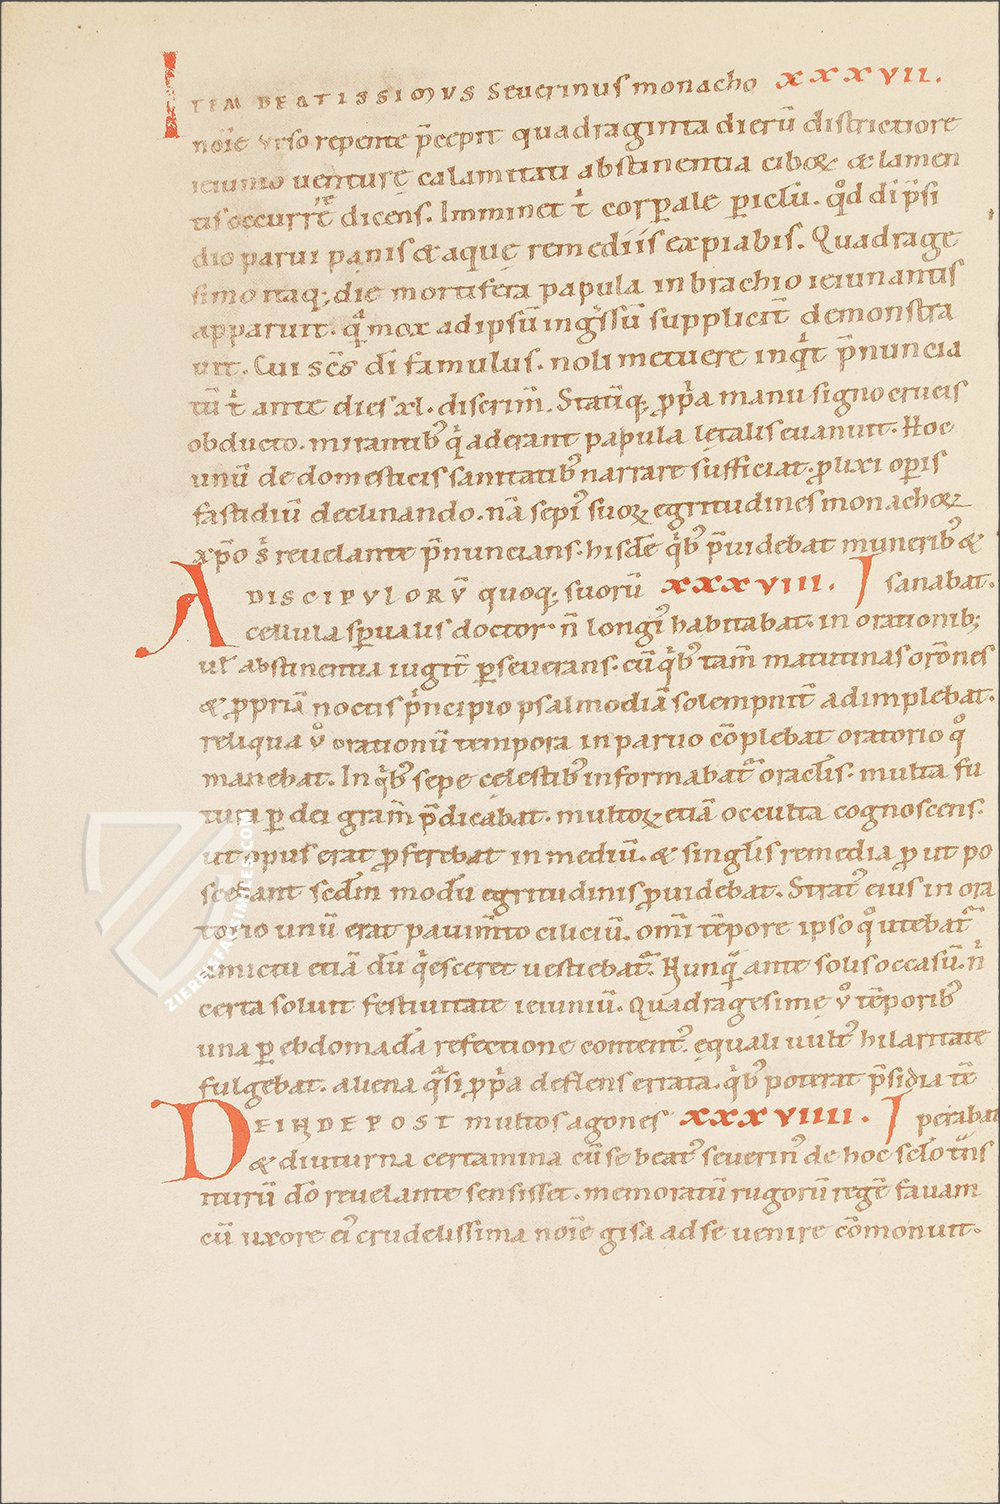 ITEM BEATISSIMVS Seuerinus monacho XXXVII.
nōie vrso repente p̄cepit quadraginta dierū districtiore
ieiunio venturę calamitati abstinentia ciboꝝ & lamen
tis occurrē dicens. Imminet t̓ corporale pericl̄m. qd̊ di p̄si
dio parui panis & aquę remediis expiabis. Quadrage
simo itaq; die mortifera papula in brachio ieiunantis
apparuit. qͣ mox ad ipsū ing̓ssū suppliciť demonstra
uit. Cui sc̄s dī famulus. noli metuere inqt̓ p̄nuncia
tū t̓ ante dies xl. discrim̄. Statīq; p̱p̓a manu signo crucis
obducto. mirantib; q̓ aderant papula letalis euanuit. Hoc
unū de domesticis sanitatib; narrare sufficiat. prolixi operis
fastidiū declinando. nā sepi' suoꝝ egritudines monachoꝝ
xp̄o s̓ reuelante p̄nuncians. hisdē qb̓; p̄uidebat munerib; &
A DISCIPVLORV̄ quoq; suorū XXXVIII. sanabat.
cellula sp̄ualis doctor n̄ longi' habitabat. in orationib;
ul̄ abstinentia iugit̄ p̱seuerans. cū qb̓; tam̄ matutinas orōnes
& p̱priā noctis p̓ncipio psalmodiā solempnit̄ adimplebat.
reliqua v̊ orationū tempora in paruo cōplebat oratorio q̊
manebat. In qb̓; sepe cęlestib; informabať oracl̄is. multa fu
tura p̱ dei gram̄ p̄dicabat. multoꝝ etiā occulta cognoscens.
ut opus erat p̱ferebat in mediū. & singl̄is remedia p̱ ut po
scebant scd̄m modū egritudinis p̱uidebat. Strať eius in ora
torio unū erat pauim̄to ciliciū. om̄i tēpore ipso q̊ utebať
amictu etiā dū q̓esceret uestiebať. Nunqͣ ante solis occasū. n̓
certa soluit festiuitate ieiuniū. Quadragesimę v̊ tēporib;
una p̱ ebdomadā refectione content'. equali uult' hilaritate
fulgebat. aliena qͣsi p̱p̓a deflens errata. qb̓; poterat p̄sidia tē
DEINDE POST multos agones XXXVIIII. perabat
& diuturna certamina cū se beat' seuerin' de hoc sc̄lo tn̄s
iturū dō reuelante sensisset. memoratū rugorū regē fauam
cū uxore ei' crudelissima nōie gisa ad se uenire cōmonuit.
ZIEREIS FACSIMILES.COM